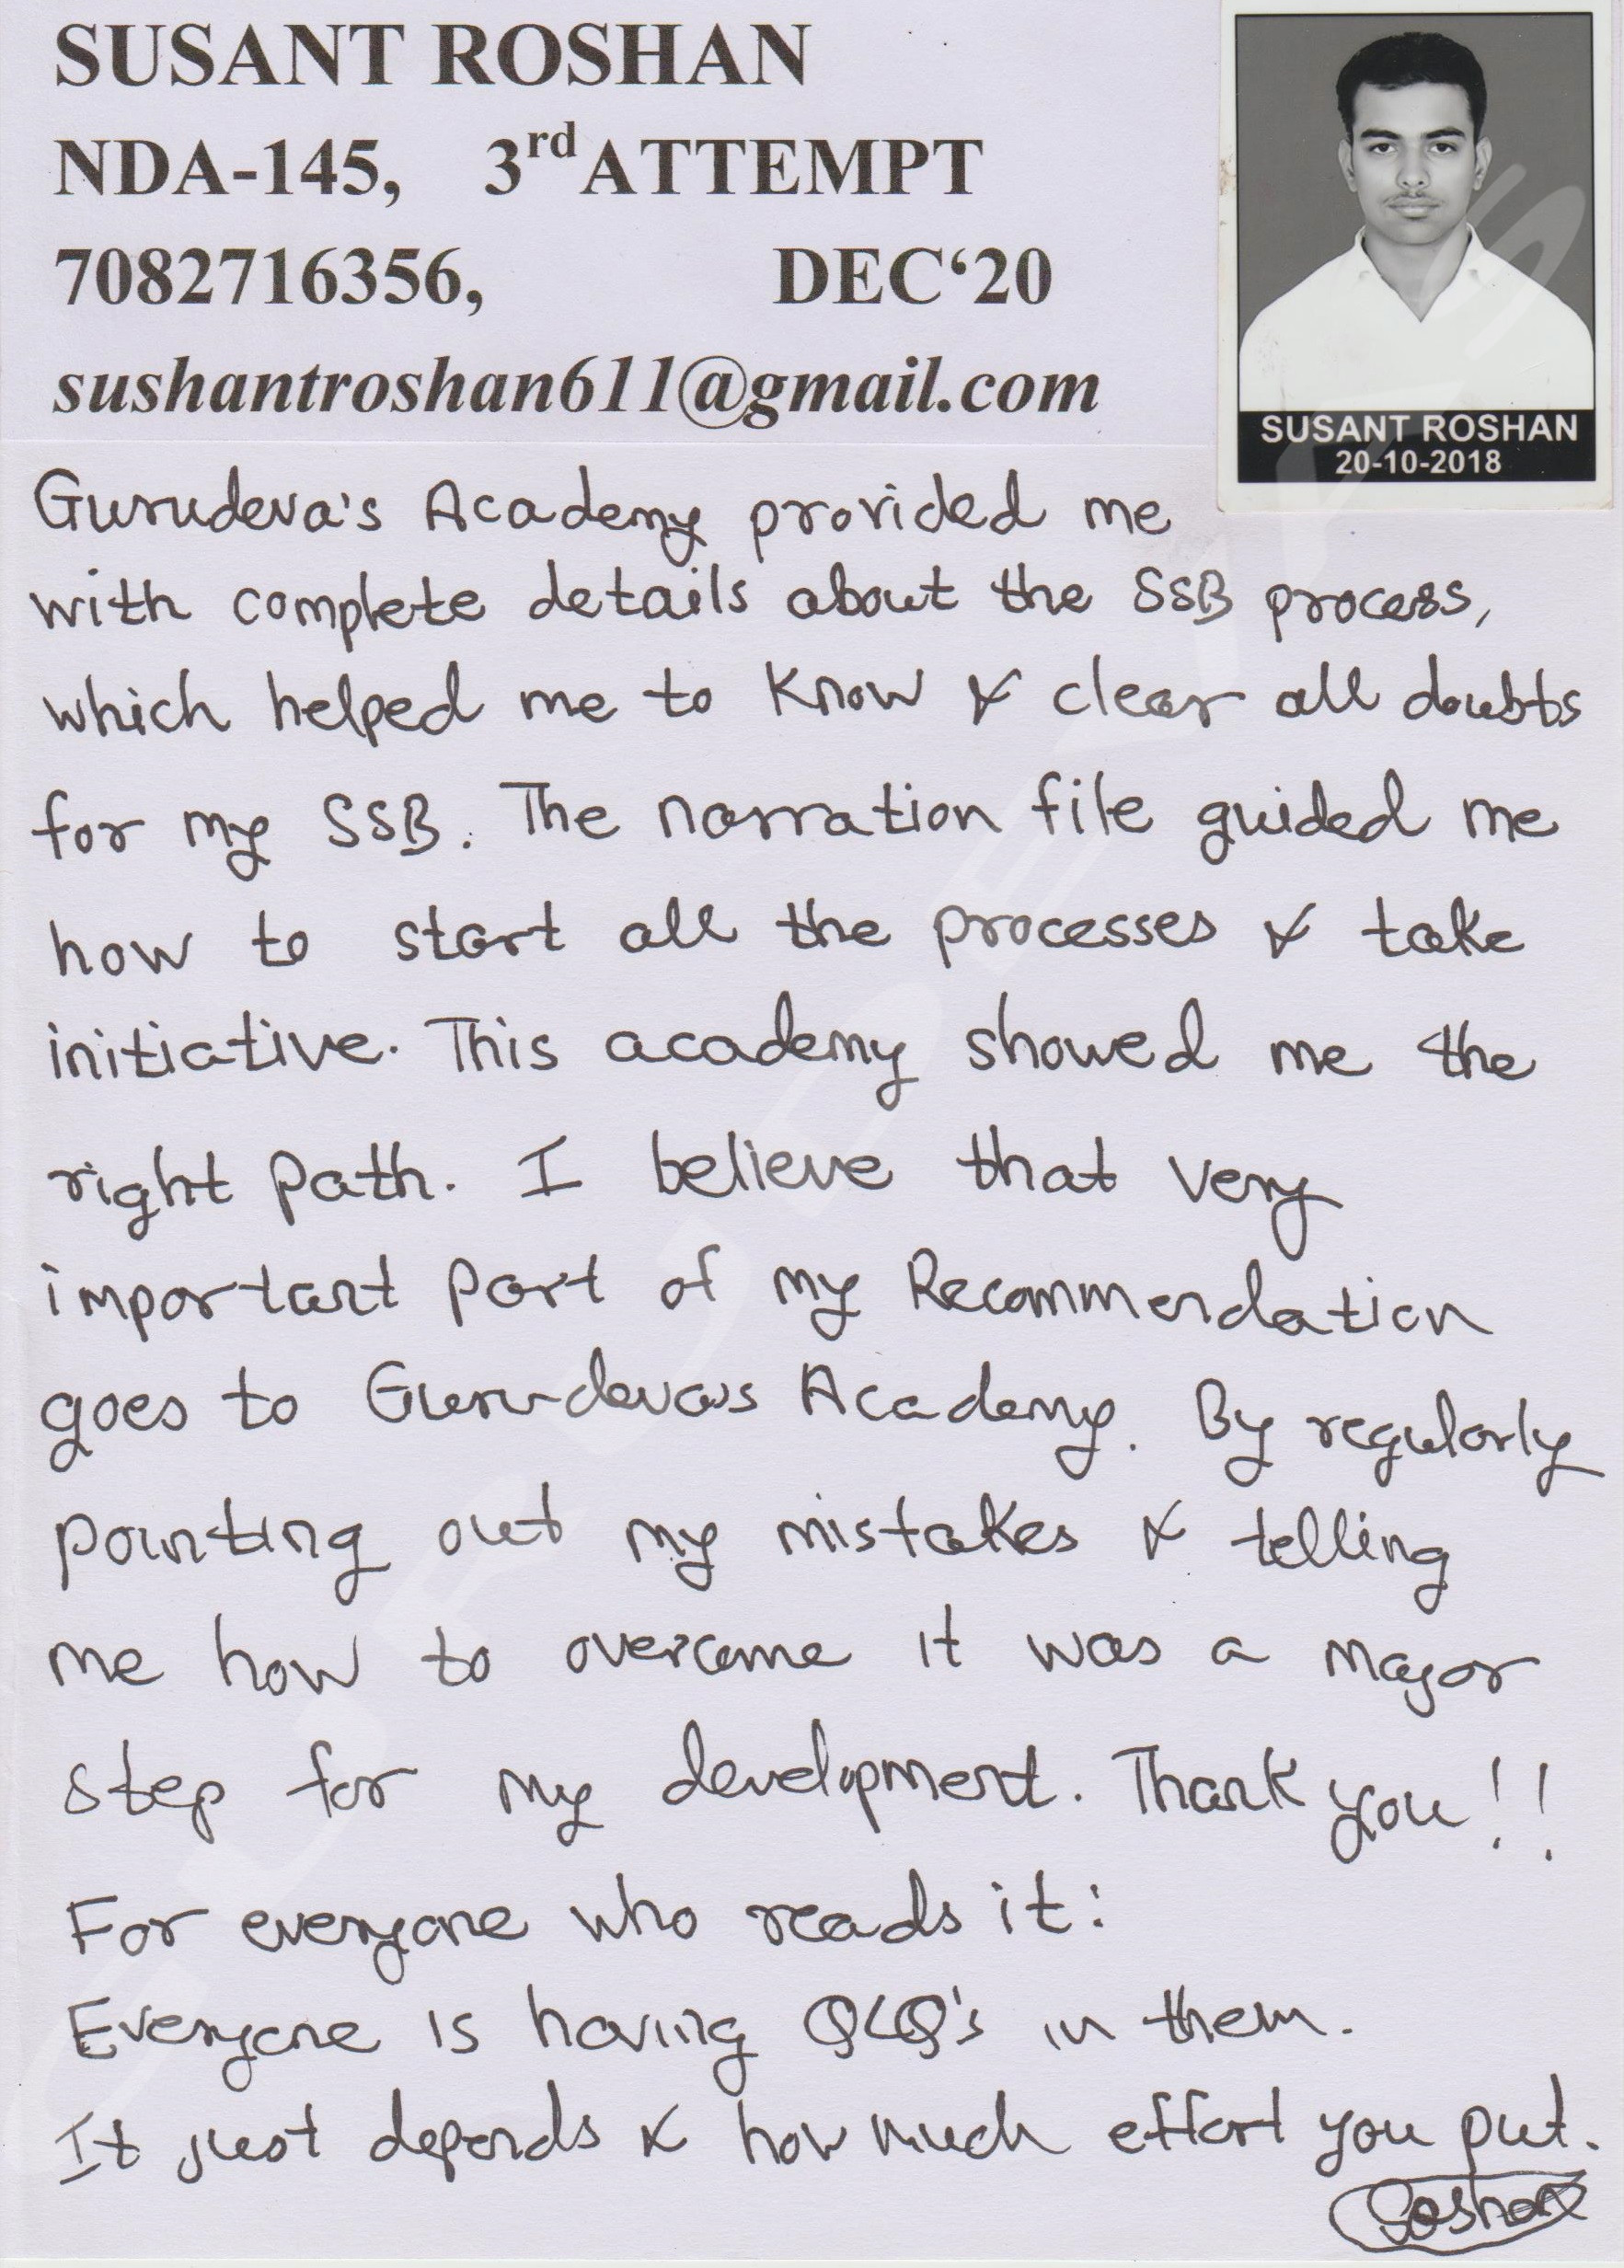 SUSANT ROSHAN
NDA-145, 3rd ATTEMPT
7082716356, DEC‘20
sushantroshan611@gmail.com
SUSANT ROSHAN
20-10-2018
Gurudeva's Academy provided me
with complete details about the SSB process,
which helped me to know & clear all doubts
for my SSB. The narration file guided me
how to start all the processes & take
initiative. This academy showed me the
right path. I believe that very
important part of my Recommendation
goes to Gurudevas Academy. By regularly
pointing out my mistakes & telling
me how to overcome it was a major
step for my development. Thank you!!
For everyone who reads it:
Everyone is having OLQ's in them.
It just depends & how much effort you put.
Roshan
GURUDEVA'S